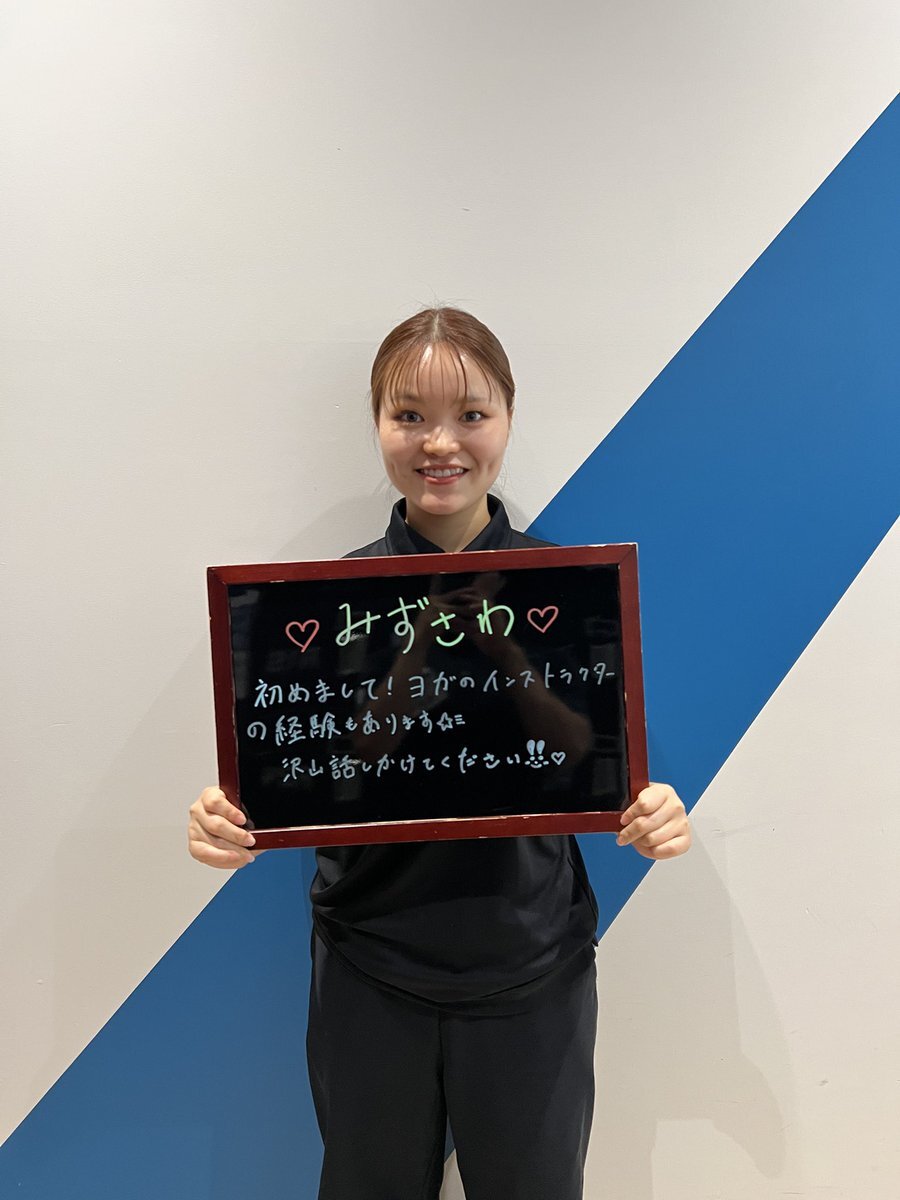 ♡みずさわ♡
初めまして！ヨガのインストラクター
の経験もあります☆
沢山話しかけてください♡